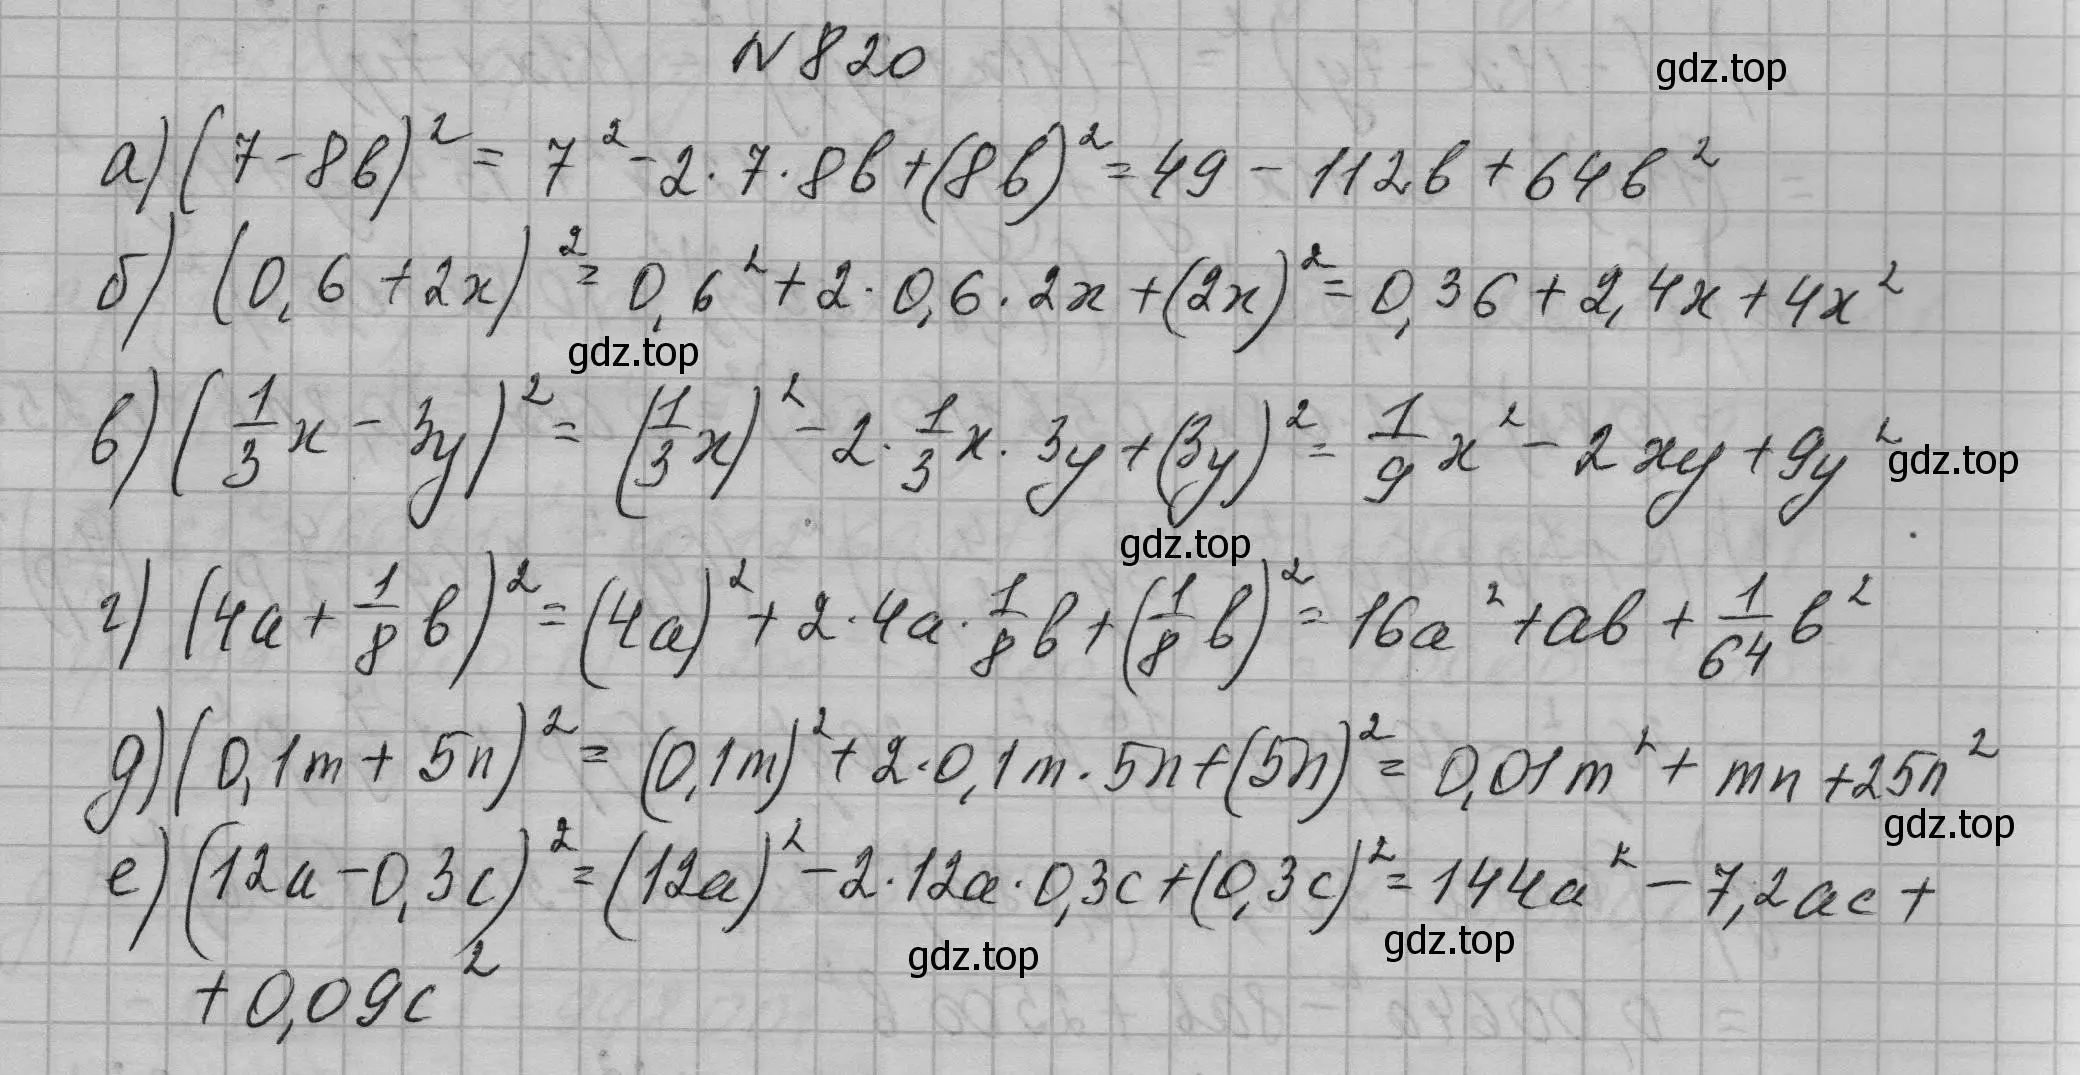 N 820
gdz.top
а) (7 - 8b)² = 7² - 2 · 7 · 8b + (8b)² = 49 - 112b + 64b²
б) (0,6 + 2x)² = 0,6² + 2 · 0,6 · 2x + (2x)² = 0,36 + 2,4x + 4x²
gdz.top
в) (1/3 x - 3y)² = (1/3 x)² - 2 · 1/3 x · 3y + (3y)² = 1/9 x² - 2xy + 9y²
gdz.top
gdz.top
г) (4a + 1/8 b)² = (4a)² + 2 · 4a · 1/8 b + (1/8 b)² = 16a² + ab + 1/64 b²
д) (0,1m + 5n)² = (0,1m)² + 2 · 0,1m · 5n + (5n)² = 0,01m² + mn + 25n²
gdz.top
е) (12a - 0,3c)² = (12a)² - 2 · 12a · 0,3c + (0,3c)² = 144a² - 7,2ac +
gdz.top
gdz.top
+ 0,09c²